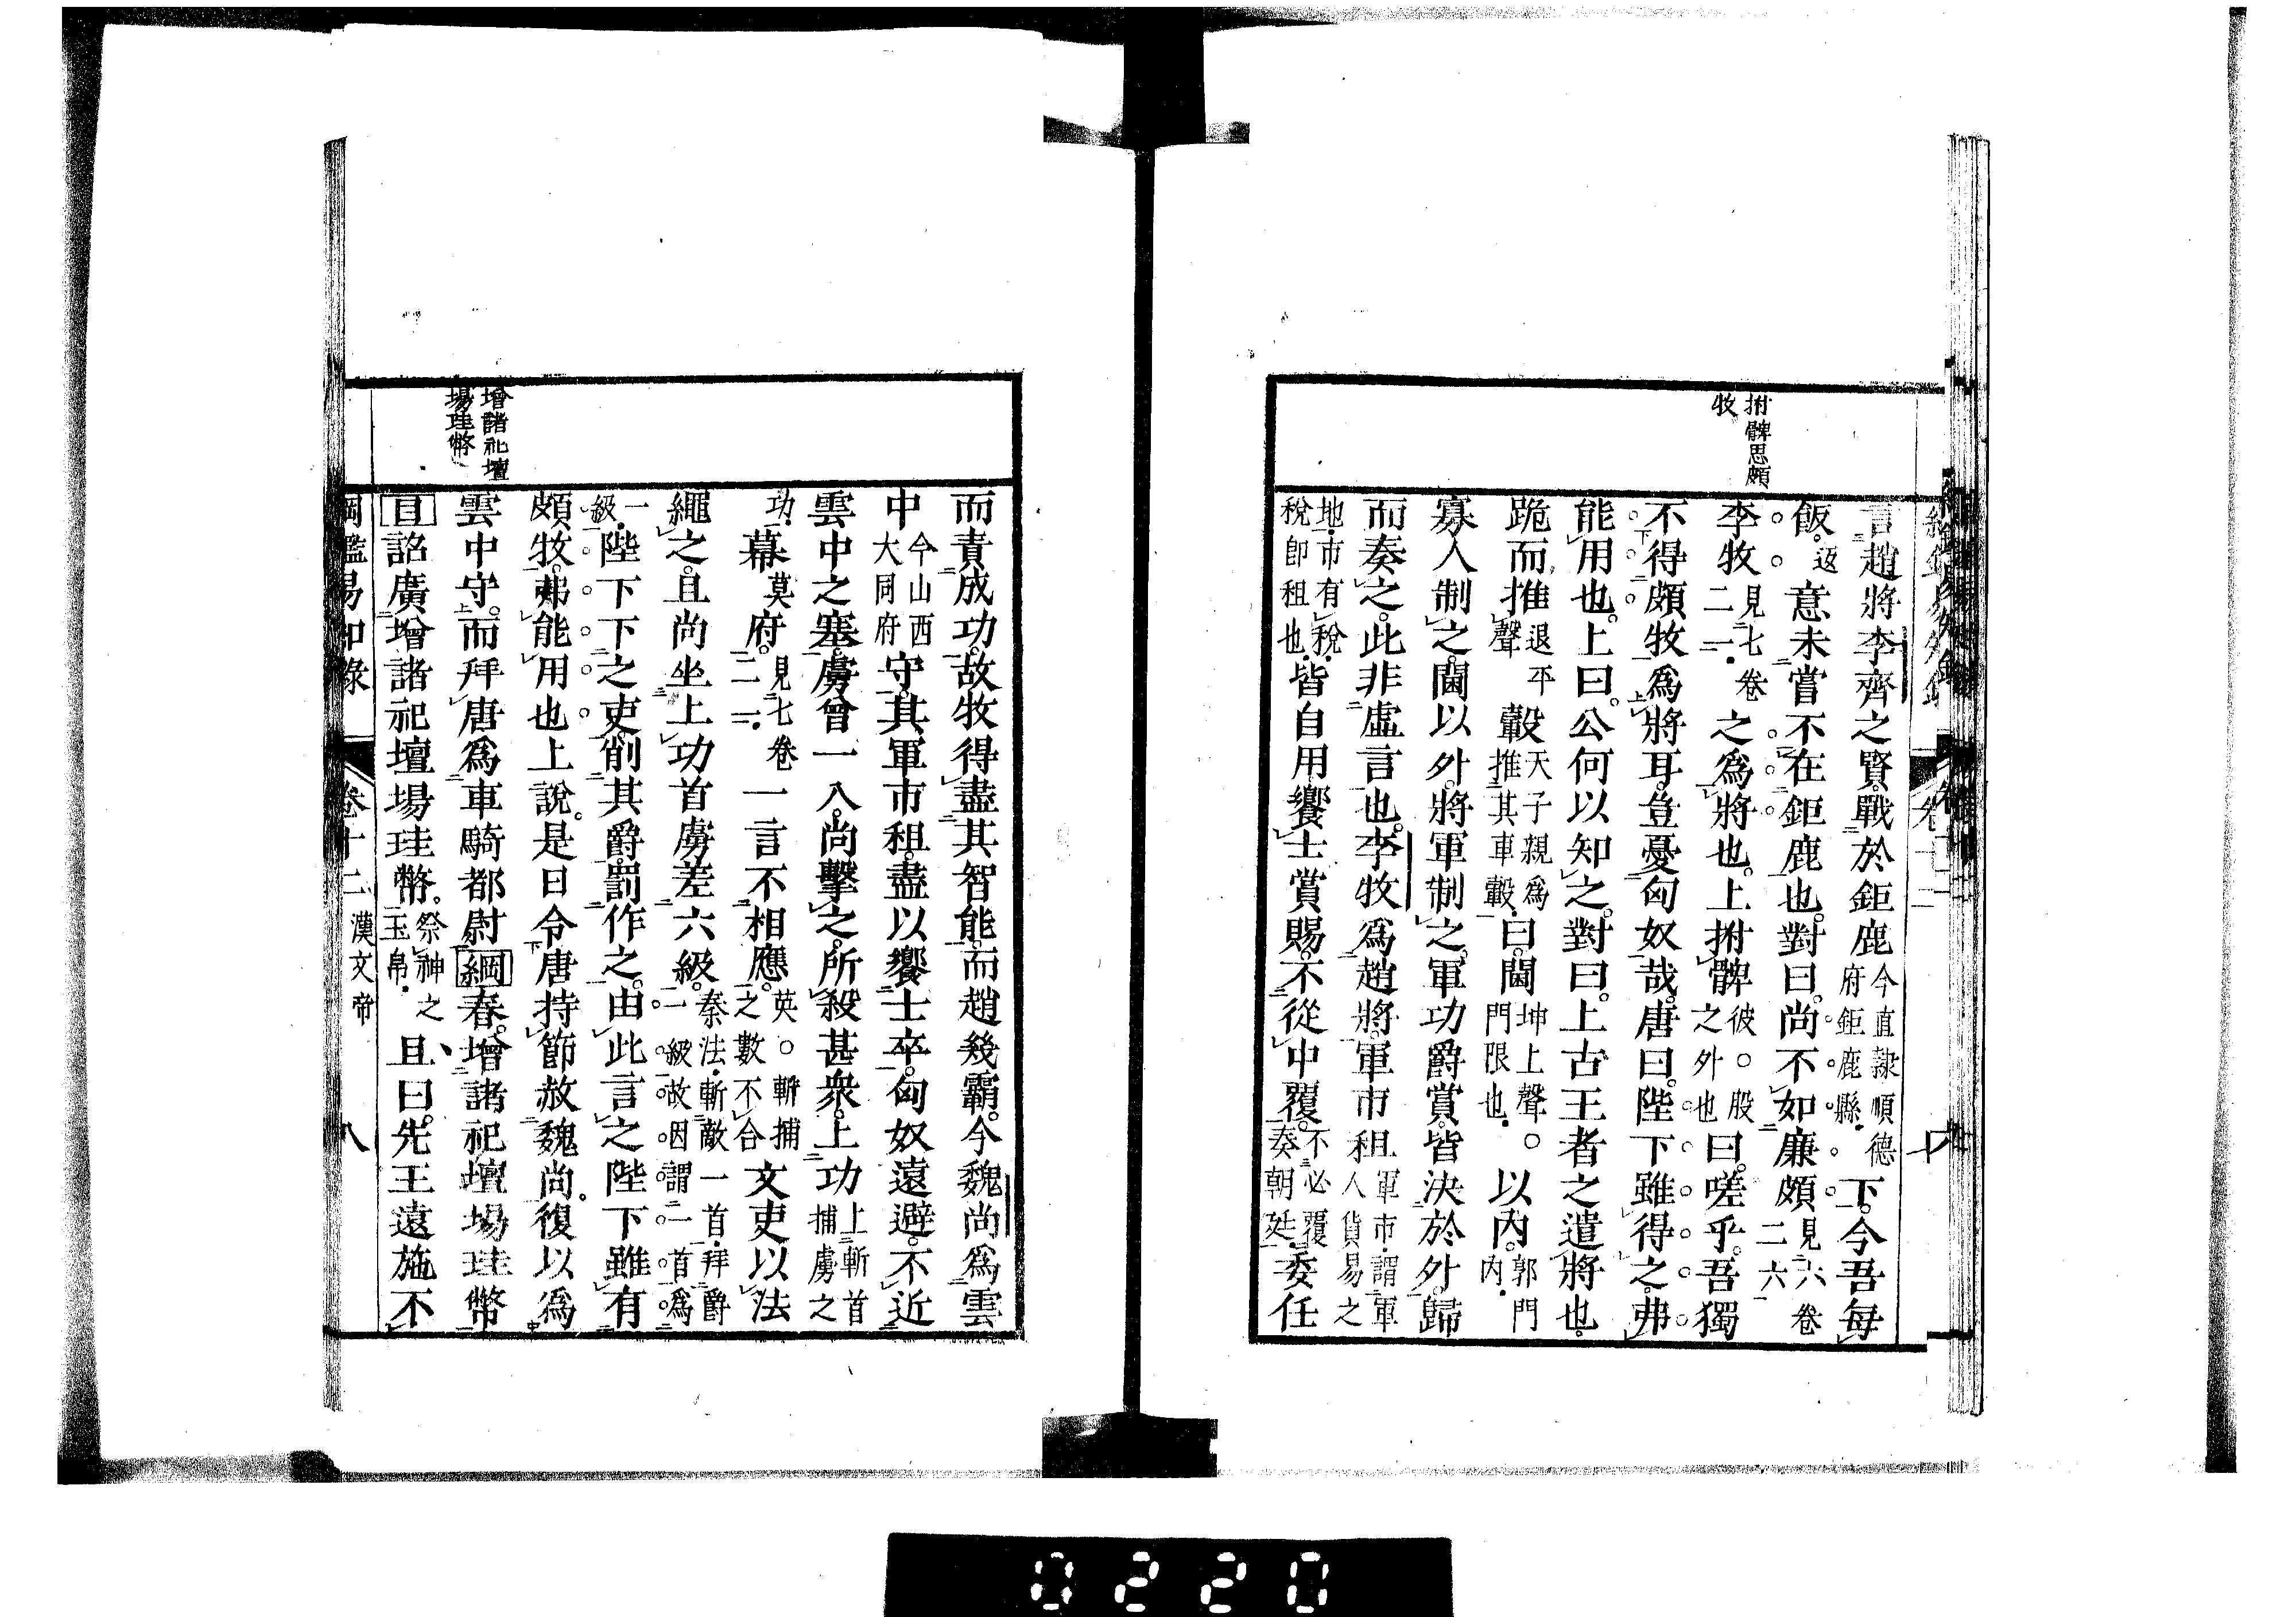 拊髀思頗
牧
言趙將李齊之賢。戰於鉅鹿今直隸順德府鉅鹿縣。下。今吾每
飯。返意未嘗不在鉅鹿也。對曰。尚不如廉頗見六卷二六
李牧見七卷二一。之為將也。上拊髀彼○股之外也曰。嗟乎。吾獨
不得頗牧為將耳。豈憂匈奴哉。唐曰。陛下雖得之。弗
能用也。上曰。公何以知之。對曰。上古王者之遣將也。
跪而推退平聲轂天子親為推其車轂。曰。閫坤上聲○門限也。以內。郭門內。
寡人制之。閫以外。將軍制之。軍功爵賞。皆決於外。歸
而奏之。此非虛言也。李牧為趙將。軍市租軍市。謂軍人貨易之
地。市有稅。稅即租也。皆自用饗士賞賜。不從中覆。不必覆奏朝廷。委任
而責成功。故牧得盡其智能。而趙幾霸。今魏尚為雲
中今山西大同府守。其軍市租。盡以饗士卒。匈奴遠避。不近
雲中之塞。虜曾一入。尚擊之。所殺甚衆。上功上斬首捕虜之
功。幕莫府。見七卷二一。一言不相應。英○斬捕之數不合文吏以法
繩之。且尚坐上功首虜差六級。秦法。斬敵一首。拜爵一級。故因謂一首為
一級。陛下下之吏。削其爵。罰作之。由此言之。陛下雖有
頗牧。弗能用也。上說。是日令唐持節赦魏尚。復以為
雲中守。而拜唐為車騎都尉綱春。增諸祀壇場珪幣
目詔廣增諸祀壇場珪幣。祭神之玉帛。且曰。先王遠施不
增諸祀壇
場珪幣
綱鑑易知錄 卷十二 漢文帝 八
0220